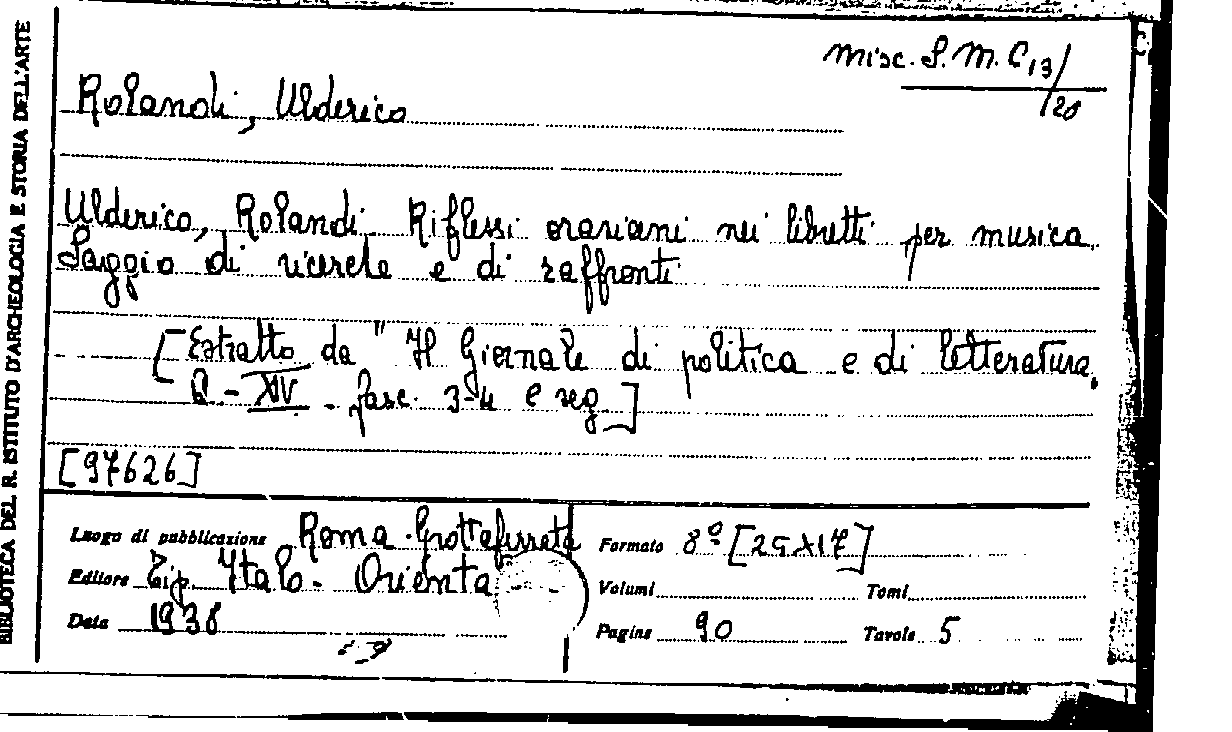 BIBLIOTECA DEL R. ISTITUTO D'ARCHEOLOGIA E STORIA DELL'ARTE
Misc. S. M. C 13/20
Rolandi, Ulderico
Ulderico, Rolandi. Riflessi oraziani nei libretti per musica.
Saggio di ricerche e di raffronti
[Estratto da "Il Giornale di politica e di letteratura.
XIV - fasc. 3-4 e seg]
[97626]
Luogo di pubblicazione Roma-Grottaferrata
Formato 8º [25x17]
Editore Tip. Italo-Orienta
Volumi Tomi
Data 1938
Pagine 90 Tavole 5